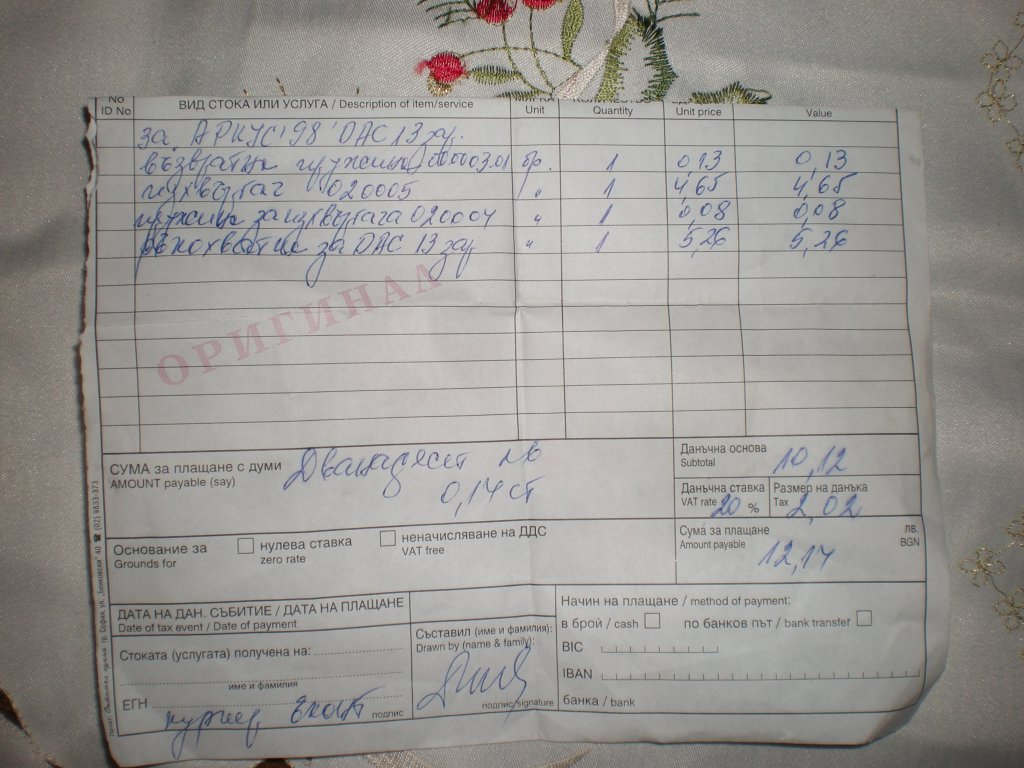 No ВИД СТОКА ИЛИ УСЛУГА / Description of item/service
ID No Unit Quantity Unit price Value
за АРКУС '98' DAC 13 зар.
възвратна пружина 0000301 бр. 1 0,13 0,13
изхвъргач 020005 " 1 4,65 4,65
пружина за изхвъргача 020004 " 1 0,08 0,08
ръкохватка за DAC 13 зар " 1 5,26 5,26
ОРИГИНАЛ
СУМА за плащане с думи Дванадесет лв
AMOUNT payable (say) 0,14 ст
Данъчна основа 10,12
Subtotal
Данъчна ставка Размер на данъка
VAT rate 20 % Tax 2,02
Сума за плащане лв.
Amount payable 12,14 BGN
Основание за нулева ставка неначисляване на ДДС
Grounds for zero rate VAT free
ДАТА НА ДАН. СЪБИТИЕ / ДАТА НА ПЛАЩАНЕ
Date of tax event / Date of payment
Стоката (услугата) получена на:
име и фамилия
ЕГН
куриер Еконт подпис
Съставил (име и фамилия):
Drawn by (name & family):
подпис/signature
Начин на плащане / method of payment:
в брой / cash по банков път / bank transfer
BIC
IBAN
банка / bank